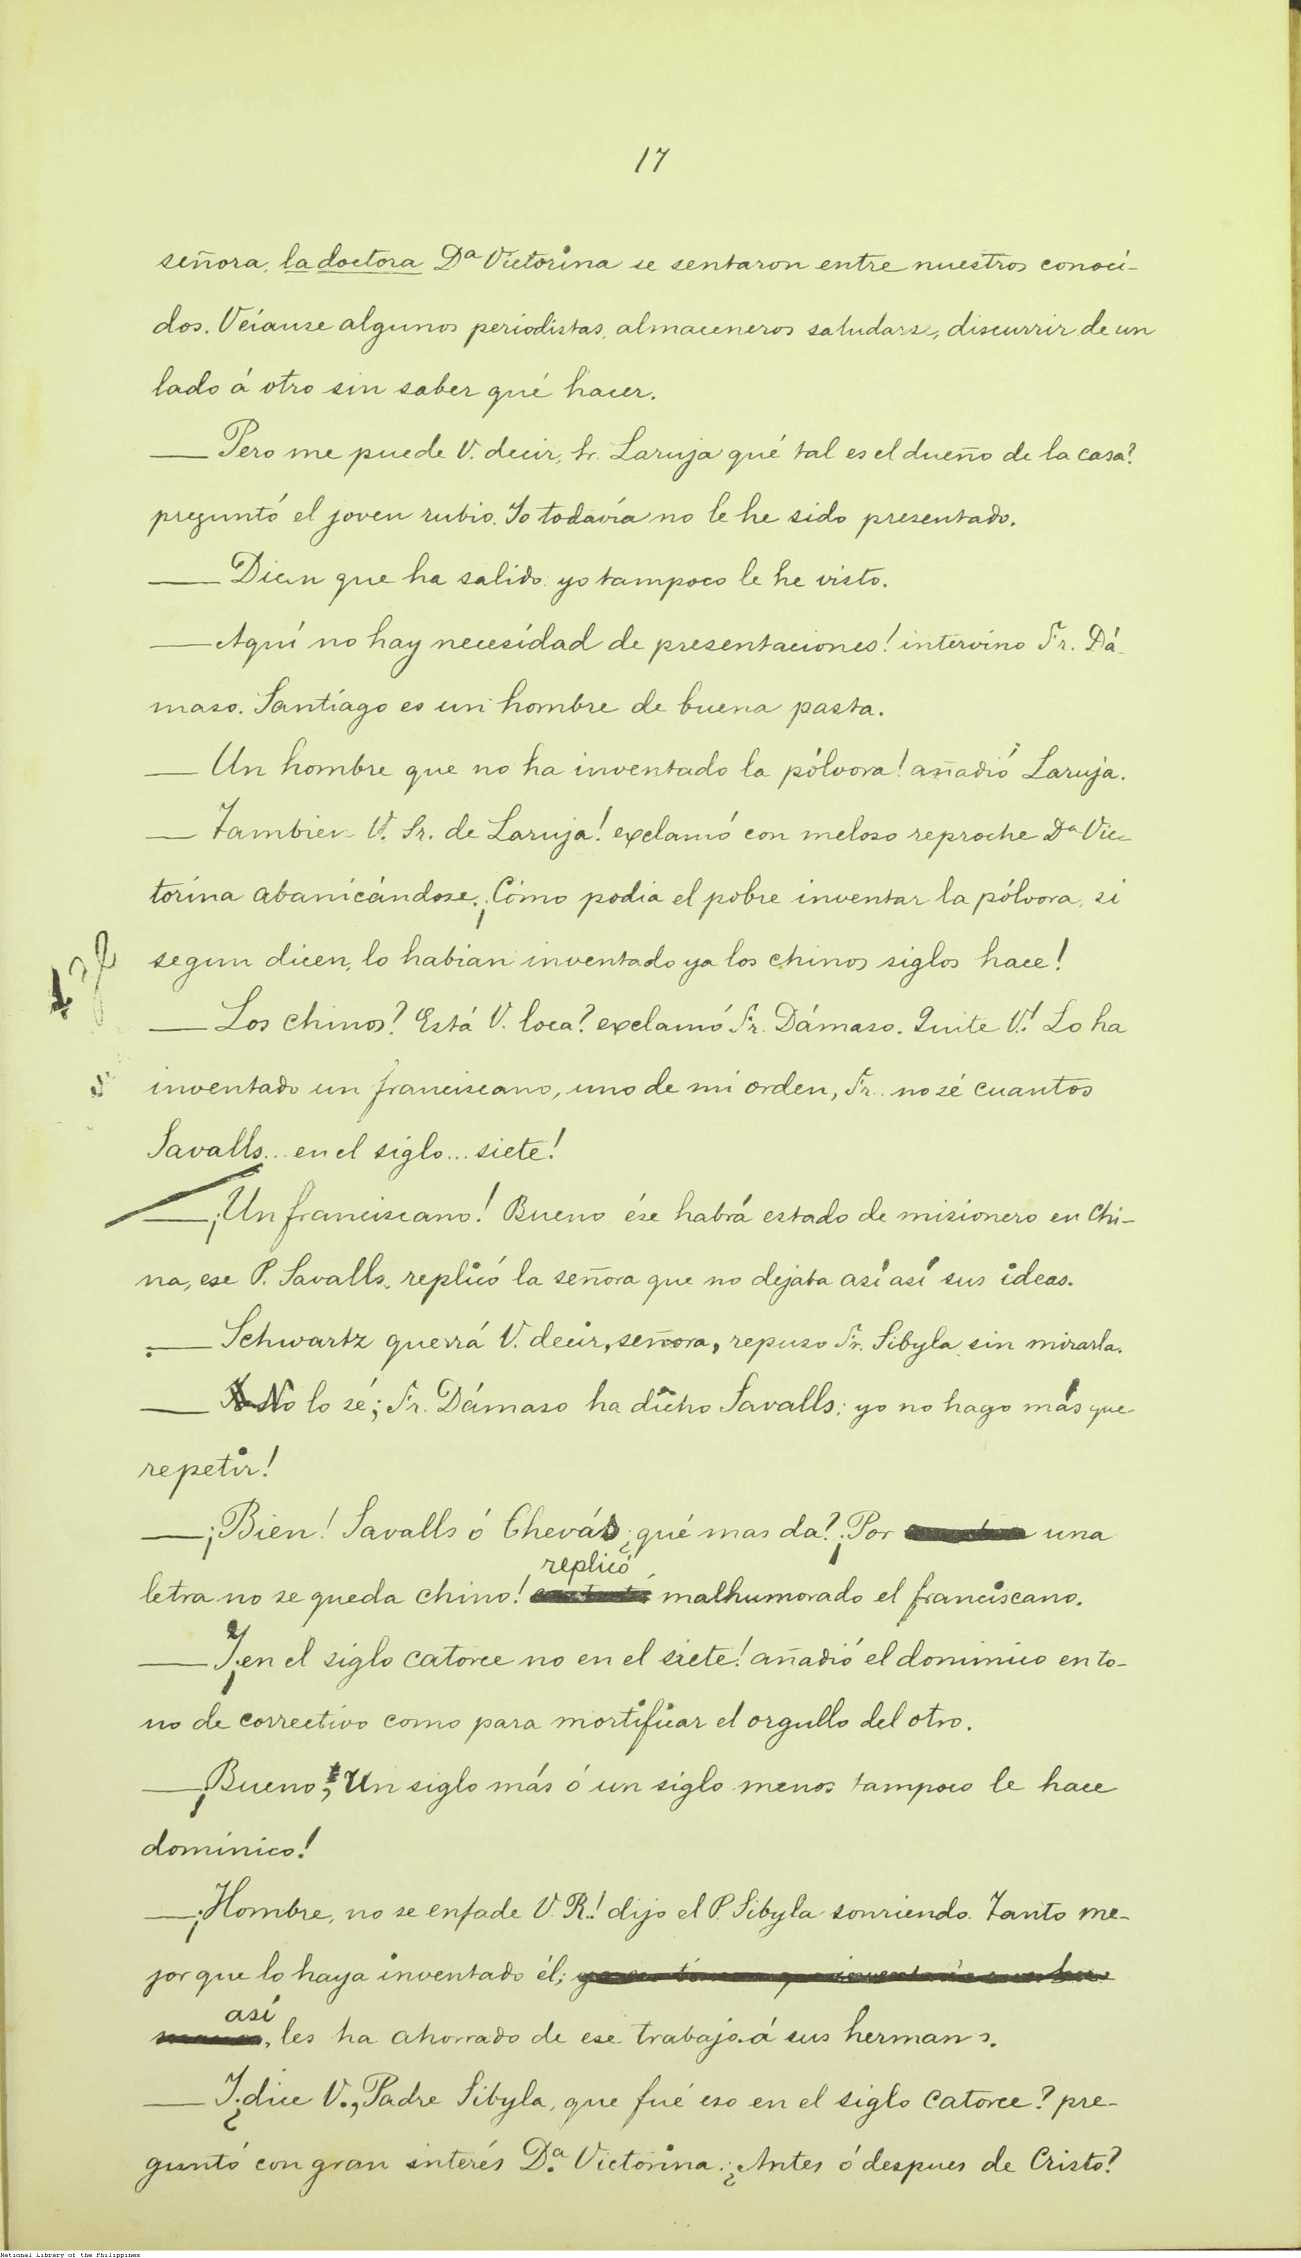 17
señora, la doctora Dª Victorina se sentaron entre nuestros conoci-
dos. Veíanse algunos periodistas, almaceneros saludarse, discurrir de un
lado á otro sin saber qué hacer.
— Pero me puede V. decir, Sr. Laruja qué tal es el dueño de la casa?
preguntó el joven rubio. Yo todavía no le he sido presentado.
— Dicen que ha salido: yo tampoco le he visto.
— Aquí no hay necesidad de presentaciones! intervino Fr. Dá-
maso. Santiago es un hombre de buena pasta.
— Un hombre que no ha inventado la pólvora! añadió Laruja.
— Tambien V. Sr. de Laruja! exclamó con meloso reproche Dª Vic-
torina abanicándose. ¡Cómo podia el pobre inventar la pólvora, si
segun dicen, lo habian inventado ya los chinos siglos hace!
— Los chinos? Está V. loca? exclamó Fr. Dámaso. Quite V.! Lo ha
inventado un franciscano, uno de mi orden, Fr. no sé cuantos
Savalls... en el siglo... siete!
— ¡Un franciscano! Bueno ése habrá estado de misionero en Chi-
na, ese P. Savalls, replicó la señora que no dejaba así así sus ideas.
— Schwartz querrá V. decir, señora, repuso Fr. Sibyla sin mirarla.
— No lo sé; Fr. Dámaso ha dicho Savalls: yo no hago más que
repetir!
— ¡Bien! Savalls ó Chevás ¿qué mas da? ¡Por una
replicó
letra no se queda chino! malhumorado el franciscano.
— ¡Y en el siglo catorce no en el siete! añadió el dominico en to-
no de correctivo como para mortificar el orgullo del otro.
— ¡Bueno, Un siglo más ó un siglo menos tampoco le hace
dominico!
— ¡Hombre, no se enfade V. R.! dijo el P. Sibyla sonriendo. Tanto me-
jor que lo haya inventado él;
así
, les ha ahorrado de ese trabajo á sus hermanos.
— Y ¿dice V., Padre Sibyla, que fué eso en el siglo catorce? pre-
guntó con gran interés Dª. Victorina. ¿Antes ó despues de Cristo?
National Library of the Philippines